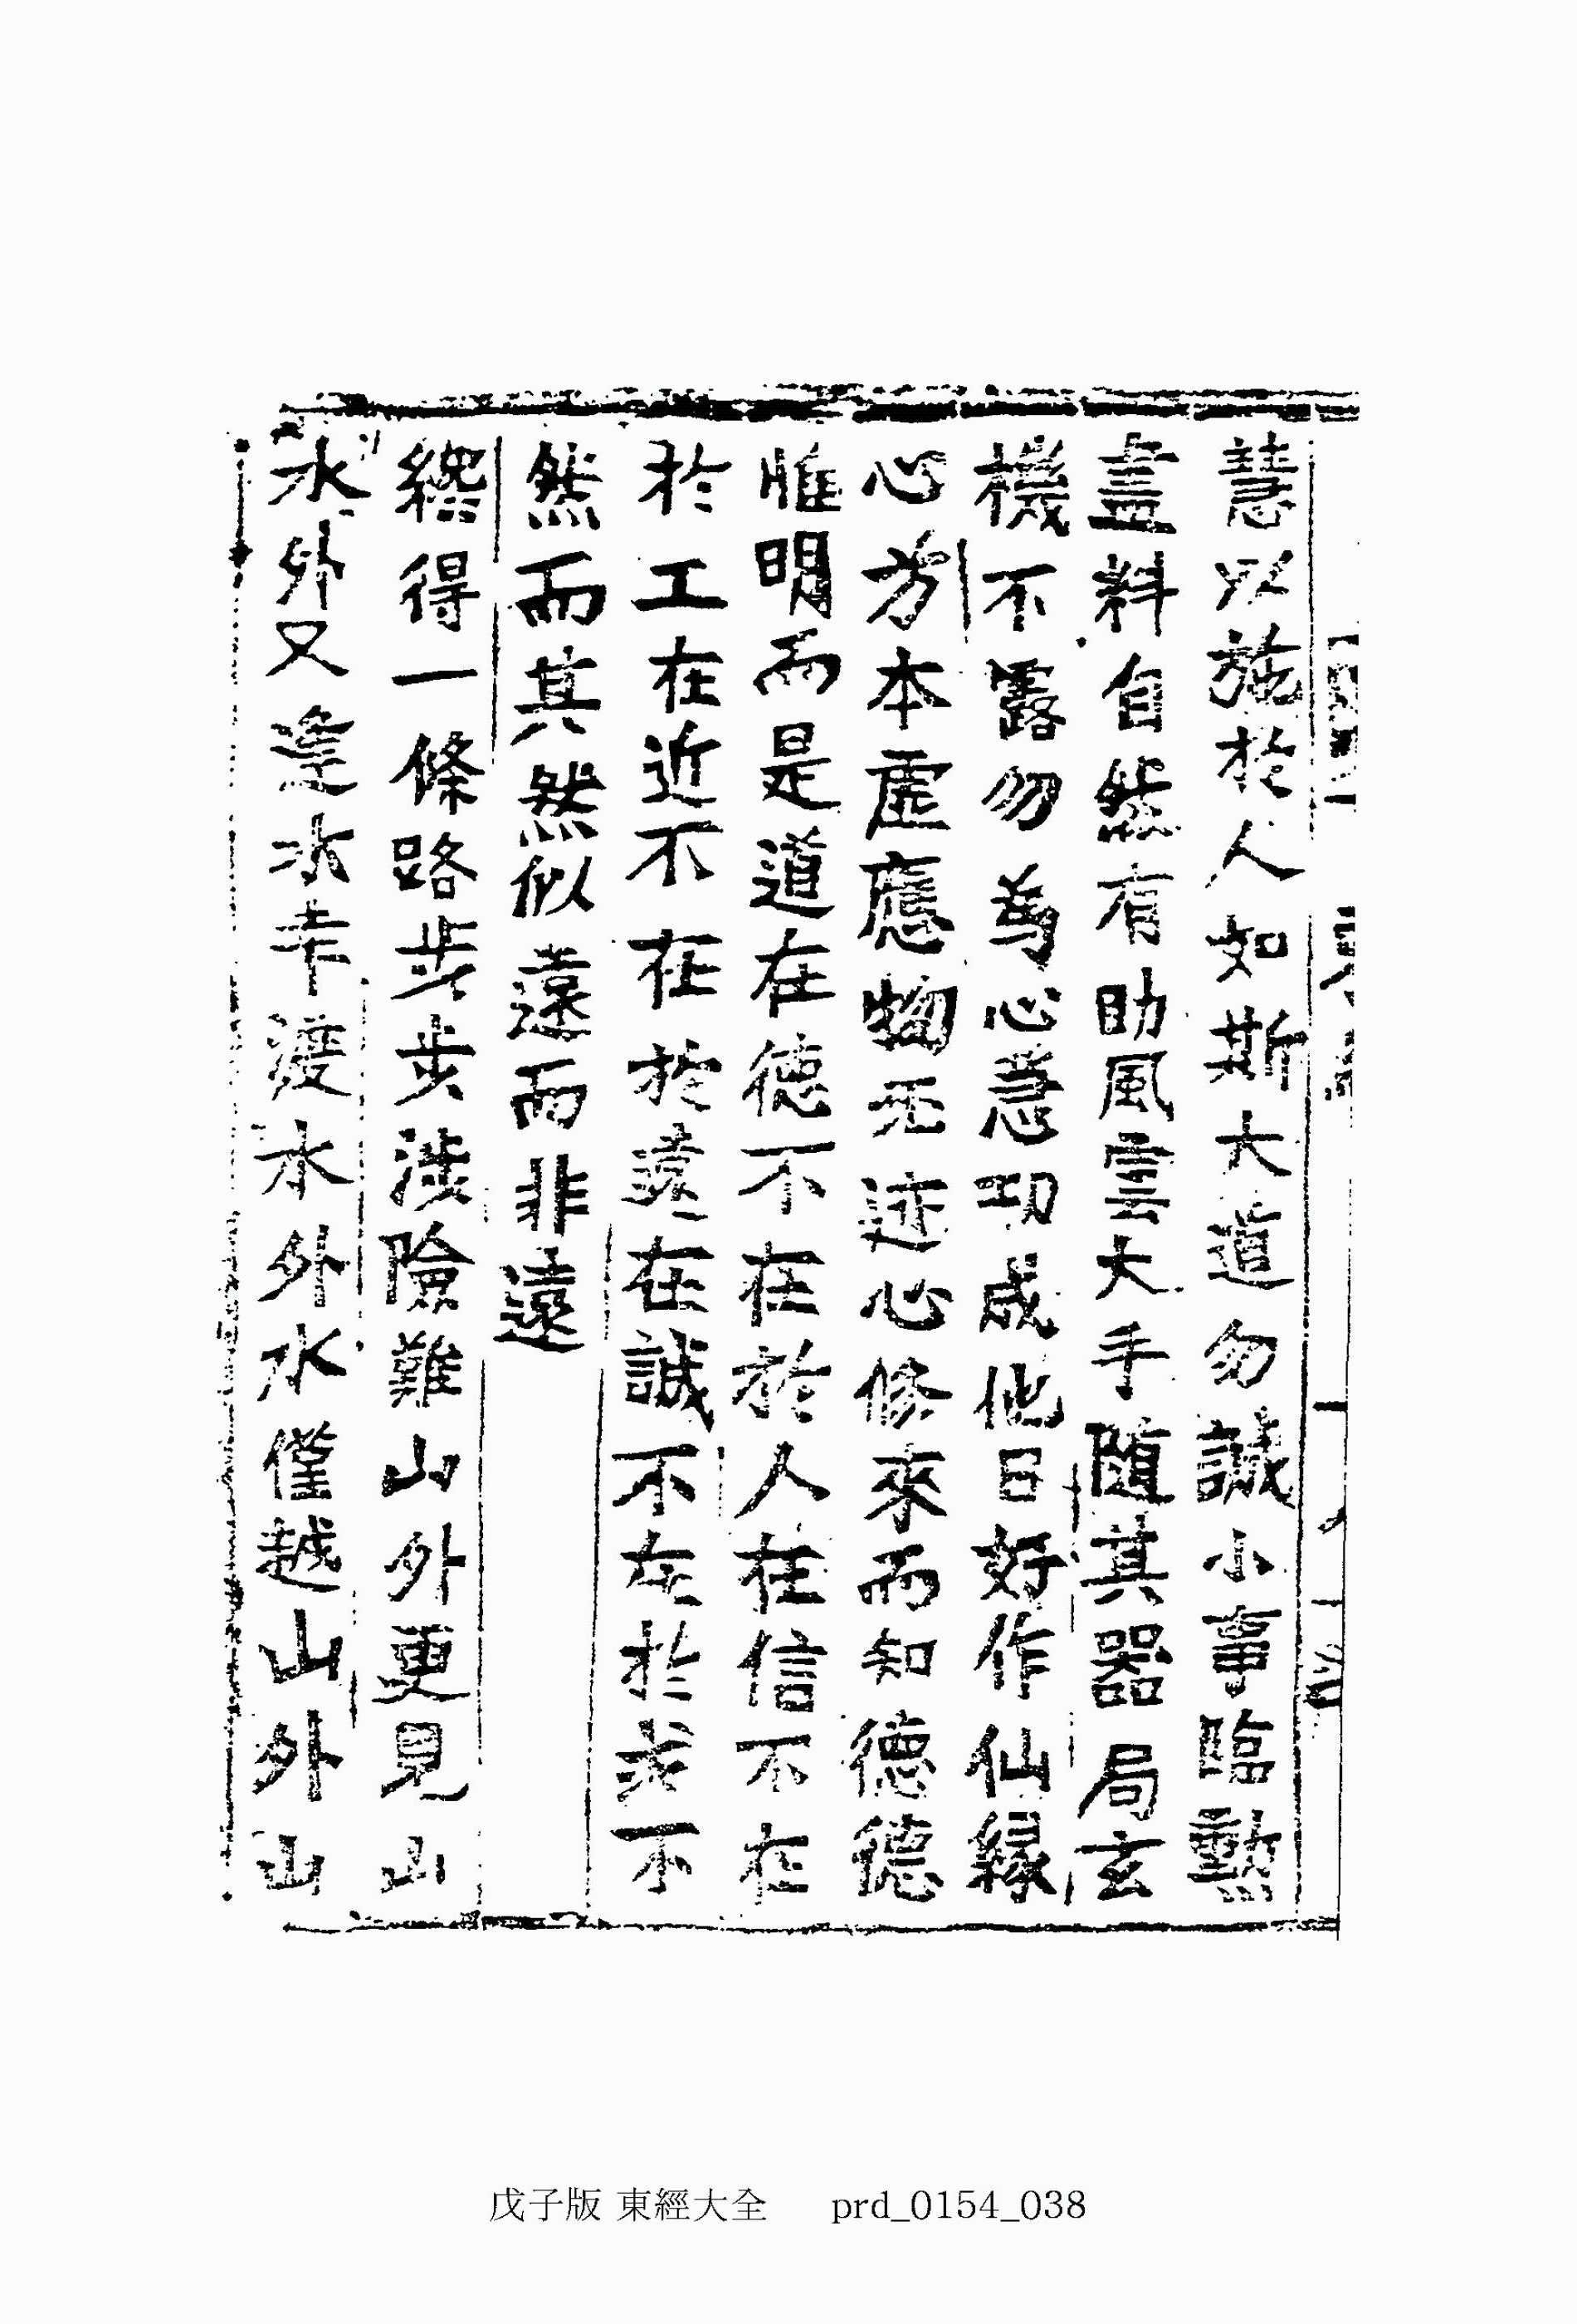 慧以施於人如斯大道勿誠小事臨勲
盡料自然有助風雲大手隨其器局玄
機不露勿爲心急功成他日好作仙緣
心芳本虛應物无迹心修來而知德德
惟明而是道在德不在於人在信不在
於工在近不在於遠在誠不在於求不
然而其然似遠而非遠
纔得一條路步步涉險難山外更見山
水外又逢水幸渡水外水僅越山外山
戊子版 東經大全 prd_0154_038